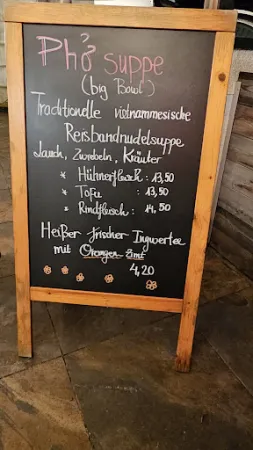 Phở suppe
(big Bowl)
Traditionelle vietnammesische
Reisbandnudelsuppe
Lauch, Zwiebeln, Kräuter
* Hühnerfleisch : 13,50
* Tofu : 13,50
* Rindfleisch : 14,50
Heißer frischer Ingwertee
mit Orangen Zimt
4,20